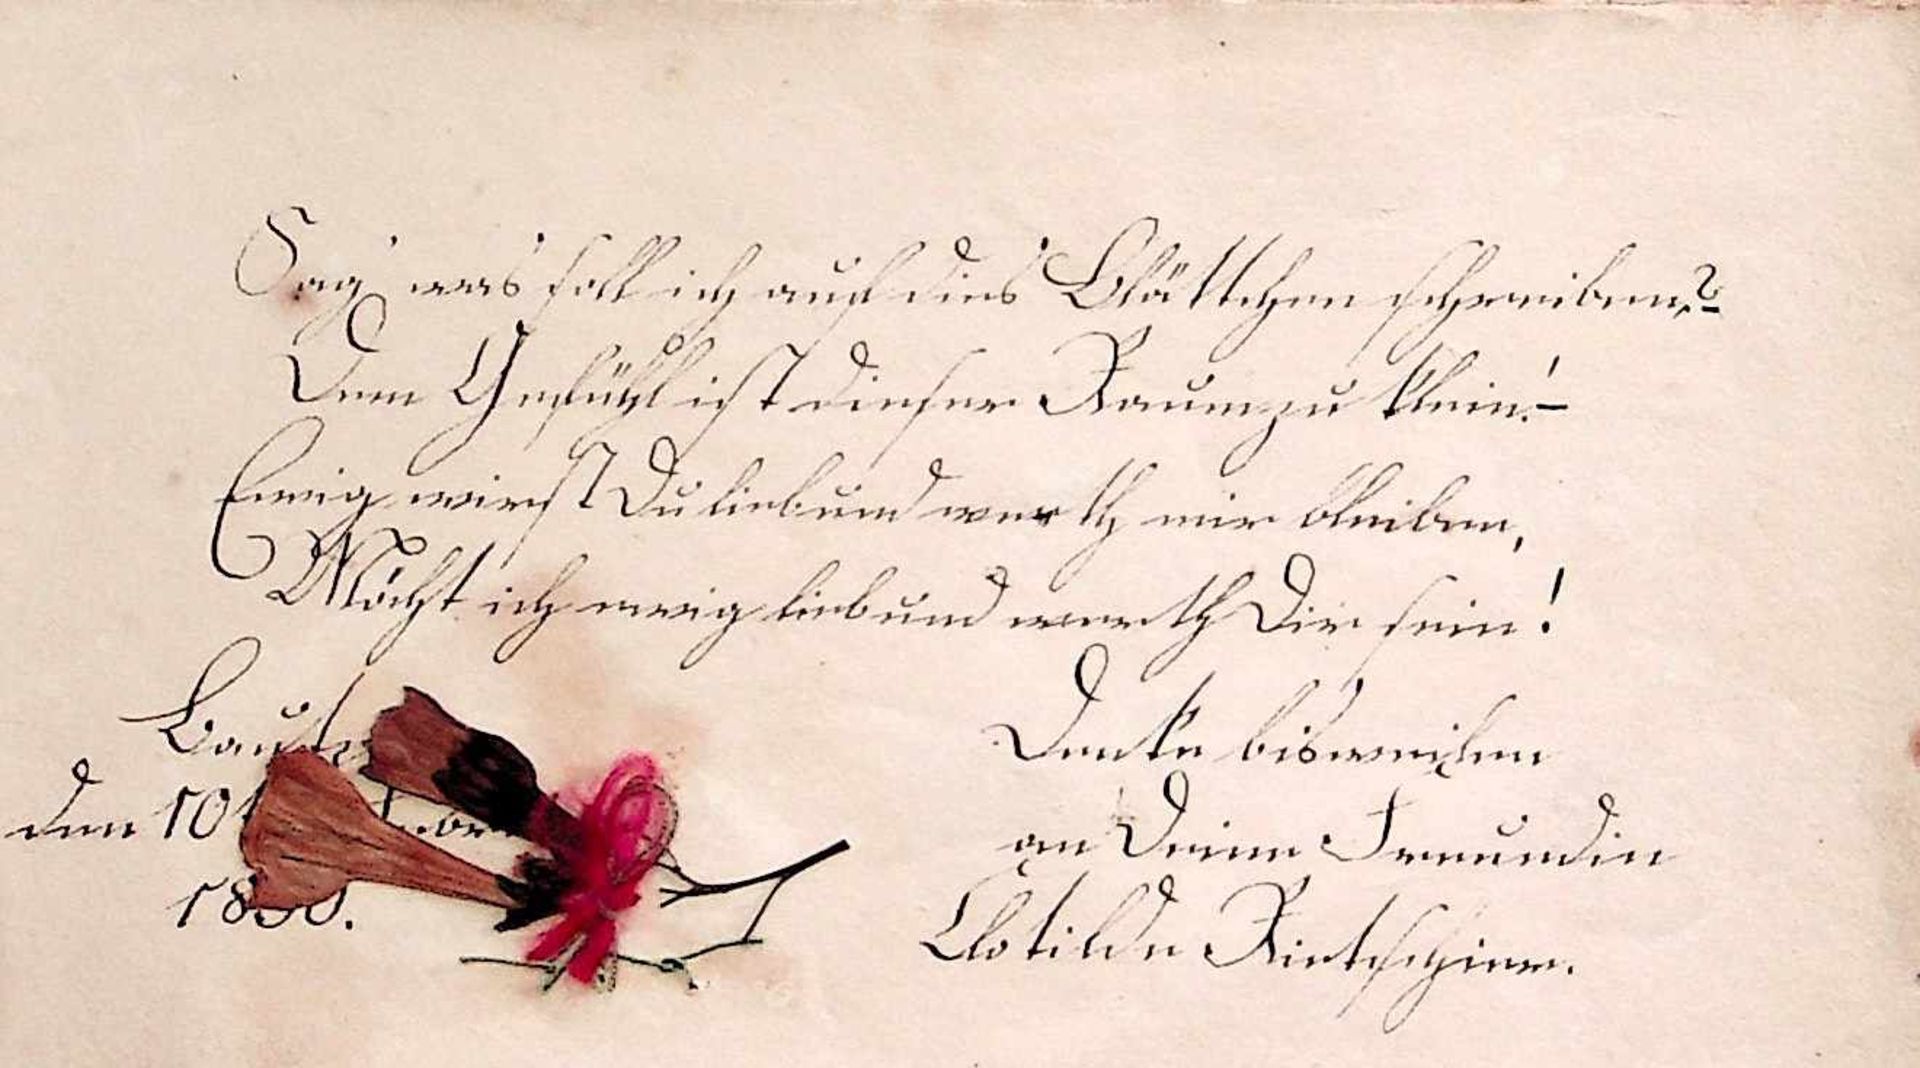 Sag' was soll ich auf dies Blättchen schreiben?
Dem Gefühl ist dieser Raum zu klein! –
Ewig wirst Du lieb und werth mir bleiben,
Möcht ich ewig lieb und werth Dir sein!
Denke bisweilen
den 10
an Deine Freundin
18
Clotilde